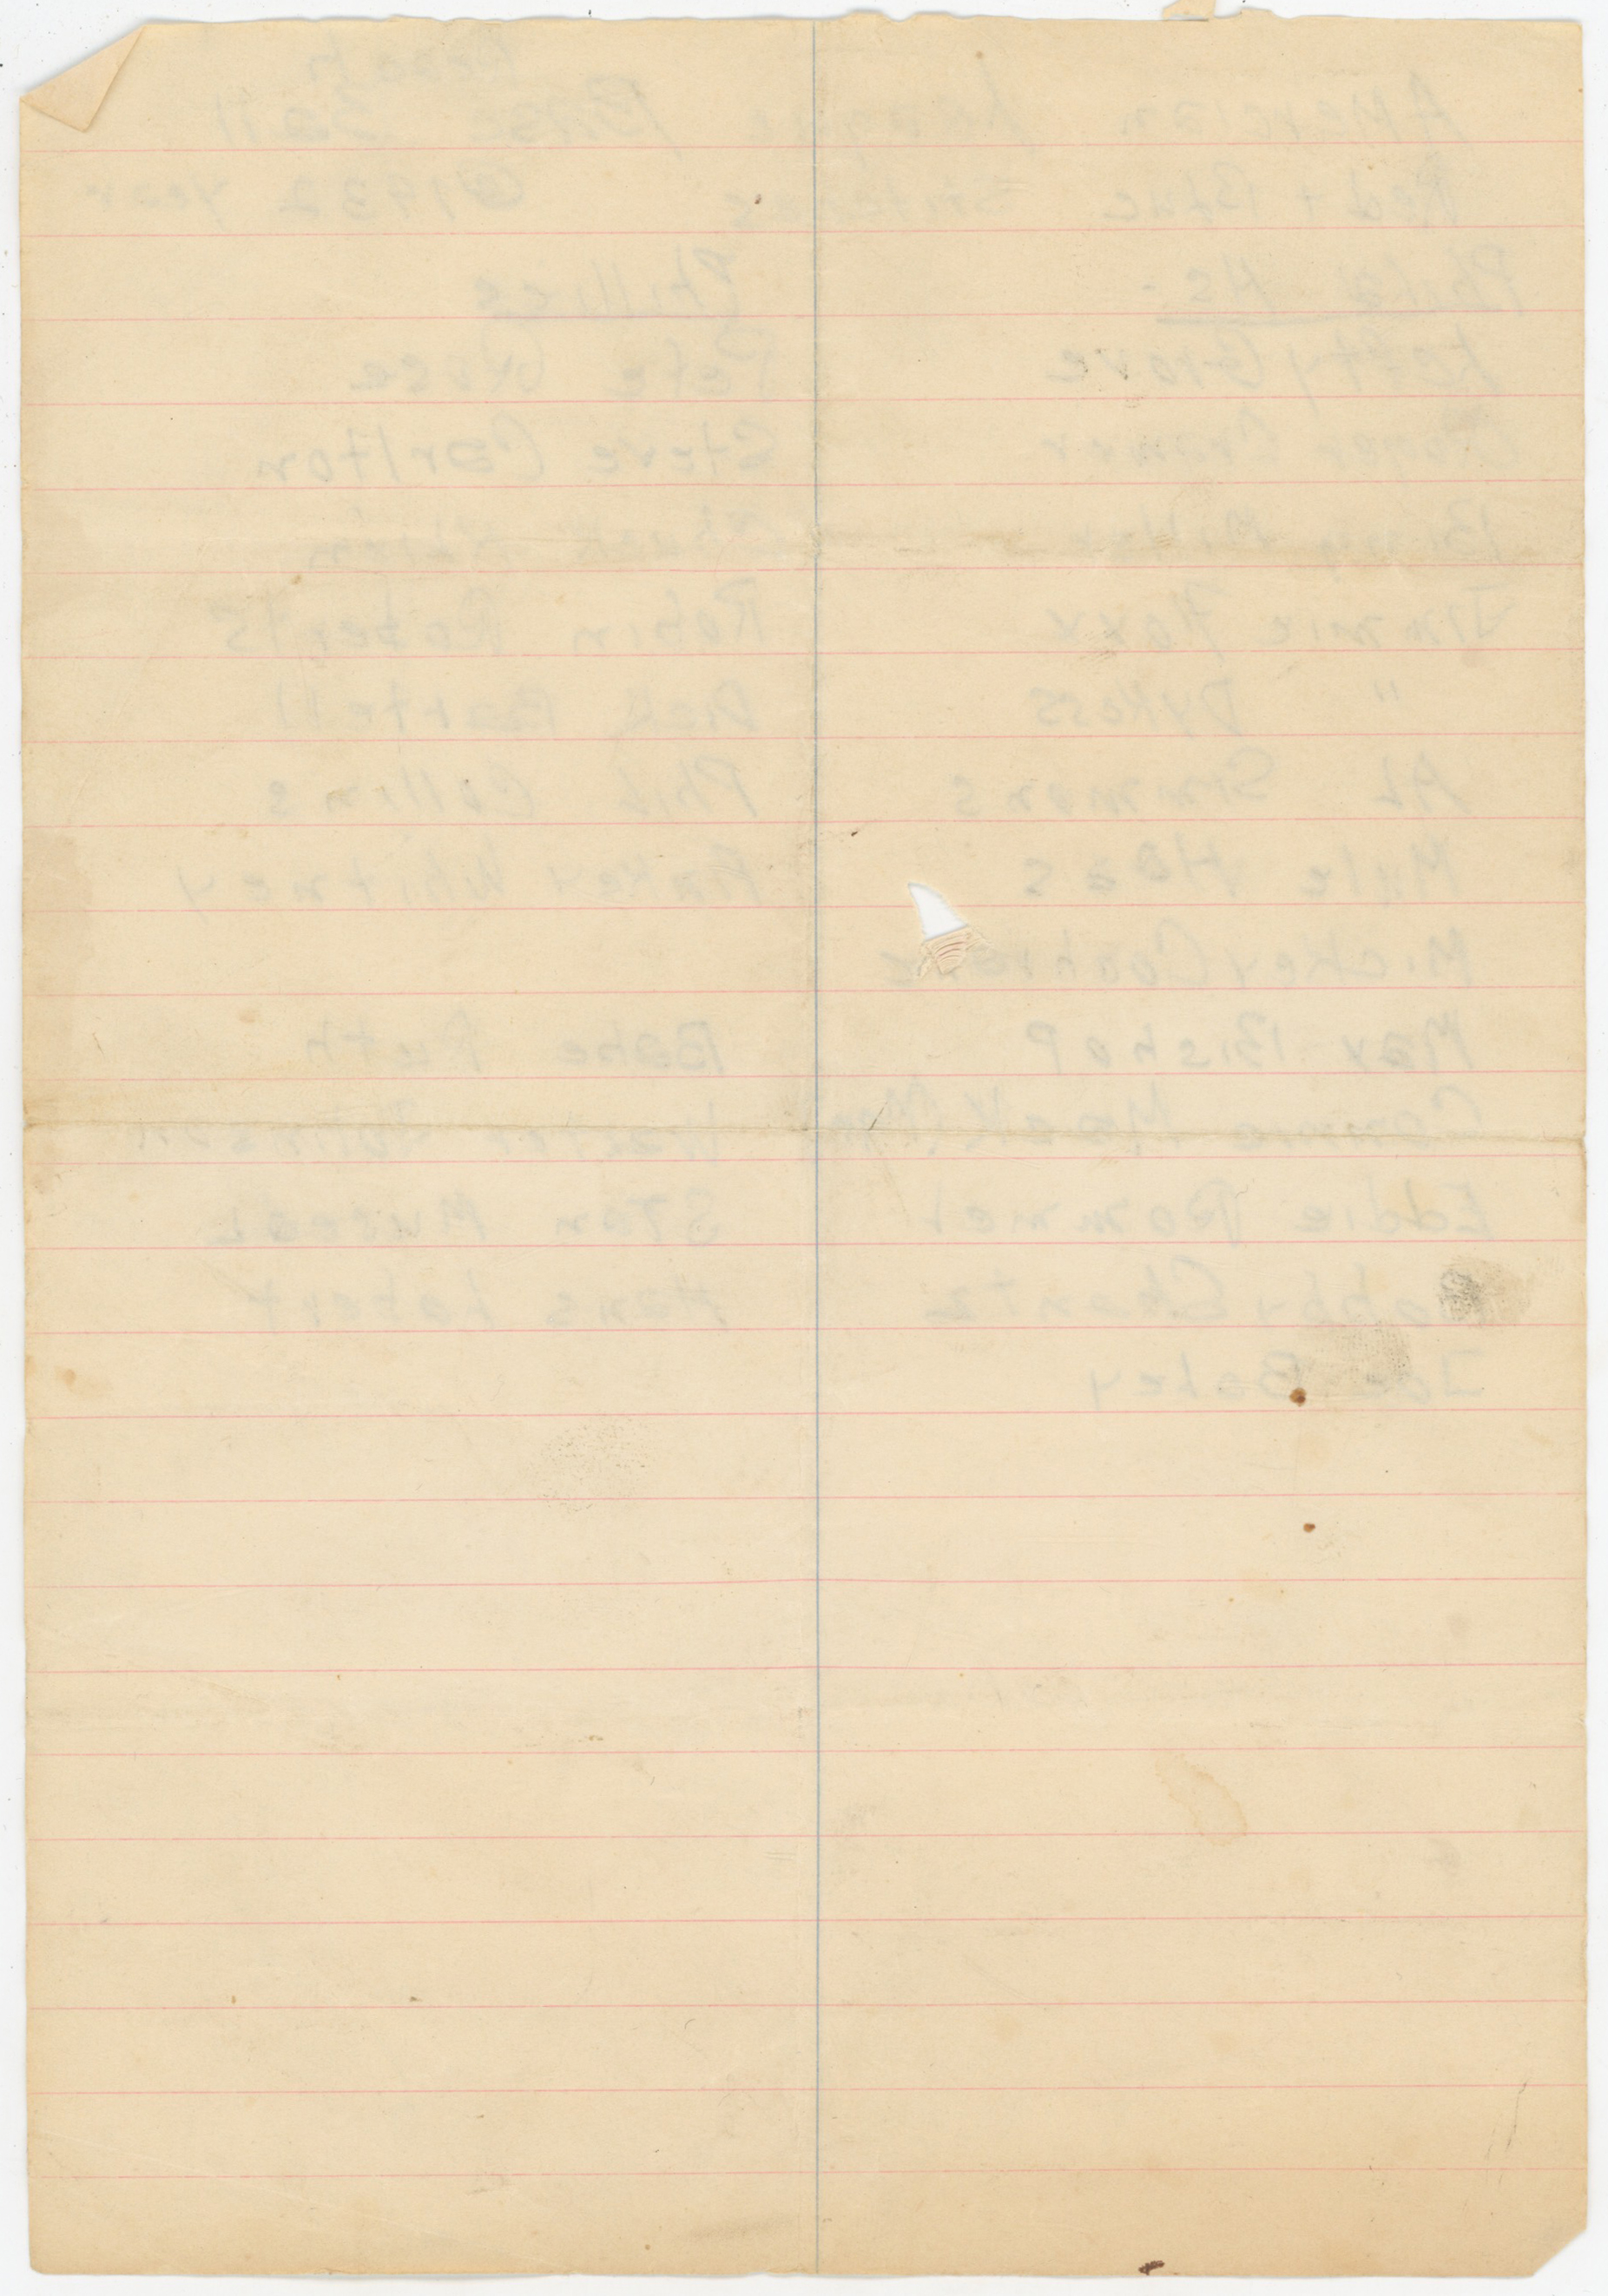 Reach
American League Base Ball
Red + Blue 1932 year
Phila As. Phillies
Lefty Grove Pete Rose
Roger Cramer Steve Carlton
Bing Miller Chuck Klein
Jimmie Foxx Robin Roberts
" Dykess Dick Bartell
AL Simmons Phil Collins
Mule Haas Pinkey Whitney
Mickey Cochrane
Max Bishop Babe Ruth
Connie Mack Walter Johnson
Eddie Rommel Stan Musial
Bobby Shantz Hans Lobert
Joe Boley